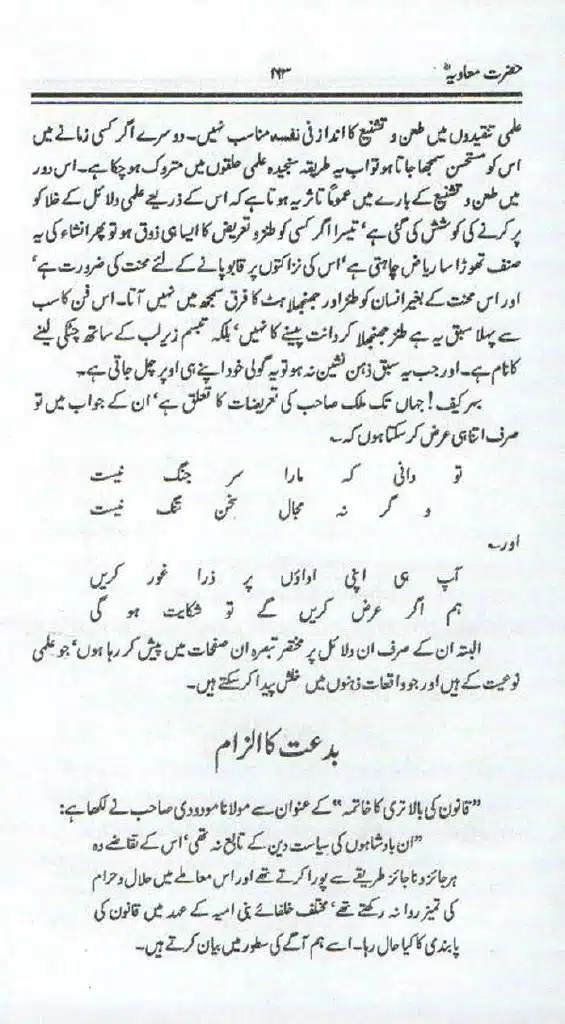 حضرت معاویہؓ
۱۹۳
علمی تنقیدوں میں طعن و تشنیع کا انداز فی نفسہ مناسب نہیں۔ دوسرے اگر کسی زمانے میں
اس کو مستحسن سمجھا جاتا ہو تو اب یہ طریقہ سنجیدہ علمی حلقوں میں متروک ہو چکا ہے۔ اس دور
میں طعن و تشنیع کے بارے میں عموماً تاثر یہ ہوتا ہے کہ اس کے ذریعے علمی دلائل کے خلا کو
پر کرنے کی کوشش کی گئی ہے، تیسرا اگر کسی کو طنز و تعریض کا ایسا ہی ذوق ہو تو پھر انشاء کی یہ
صنف تھوڑا سا ریاض چاہتی ہے، اس کی نزاکتوں پر قابو پانے کے لئے محنت کی ضرورت ہے،
اور اس محنت کے بغیر انسان کو طنز اور جھنجھلاہٹ کا فرق سمجھ میں نہیں آتا۔ اس فن کا سب
سے پہلا سبق یہ ہے طنز جھنجھلا کر دانت پیسنے کا نہیں، بلکہ تبسم زیر لب کے ساتھ چٹکی لینے
کا نام ہے۔ اور جب یہ سبق ذہن نشین نہ ہو تو یہ گولی خود اپنے ہی اوپر چل جاتی ہے۔
بہر کیف! جہاں تک ملک صاحب کی تعریضات کا تعلق ہے، ان کے جواب میں تو
صرف اتنا ہی عرض کر سکتا ہوں کہ۔
تو دانی کہ مارا سر جنگ نیست
و گر نہ مجال سخن تنگ نیست
اور۔
آپ ہی اپنی اداؤں پر ذرا غور کریں
ہم اگر عرض کریں گے تو شکایت ہو گی
البتہ ان کے صرف ان دلائل پر مختصر تبصرہ ان صفحات میں پیش کر رہا ہوں، جو علمی
نوعیت کے ہیں اور جو واقعات ذہنوں میں خلش پیدا کر سکتے ہیں۔
بدعت کا الزام
”قانون کی بالاتری کا خاتمہ“ کے عنوان سے مولانا مودودی صاحب نے لکھا ہے:
”ان بادشاہوں کی سیاست دین کے تابع نہ تھی، اس کے تقاضے وہ
ہر جائز و ناجائز طریقے سے پورا کرتے تھے اور اس معاملے میں حلال و حرام
کی تمیز روا نہ رکھتے تھے، مختلف خلفائے بنی امیہ کے عہد میں قانون کی
پابندی کا کیا حال رہا۔ اسے ہم آگے کی سطور میں بیان کرتے ہیں۔